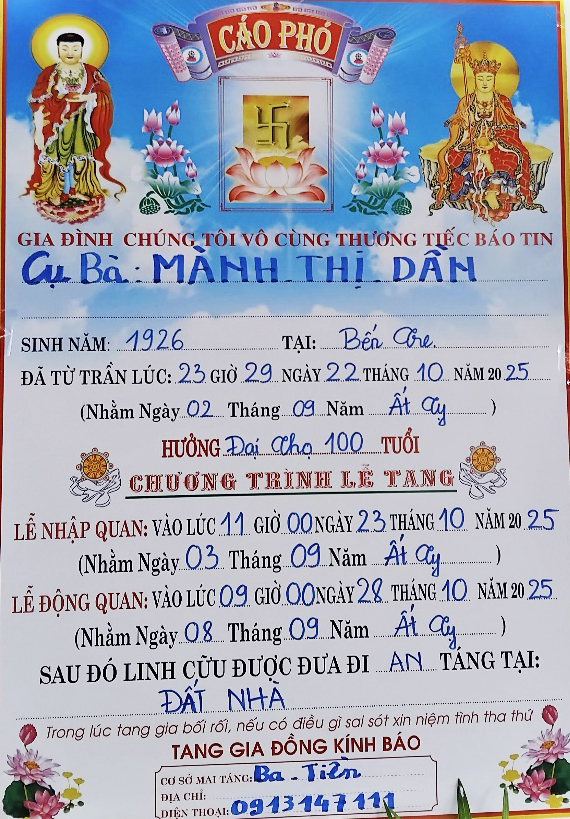 CÁO PHÓ
GIA ĐÌNH CHÚNG TÔI VÔ CÙNG THƯƠNG TIẾC BÁO TIN
Cụ Bà: MÀNH THỊ DẦN
SINH NĂM: 1926 TẠI: Bến Tre.
ĐÃ TỪ TRẦN LÚC: 23 GIỜ 29 NGÀY 22 THÁNG 10 NĂM 2025
(Nhằm Ngày 02 Tháng 09 Năm Ất Tỵ )
HƯỞNG Đại Thọ 100 TUỔI
CHƯƠNG TRÌNH LỄ TANG
LỄ NHẬP QUAN: VÀO LÚC 11 GIỜ 00 NGÀY 23 THÁNG 10 NĂM 2025
(Nhằm Ngày 03 Tháng 09 Năm Ất Tỵ )
LỄ ĐỘNG QUAN: VÀO LÚC 09 GIỜ 00 NGÀY 28 THÁNG 10 NĂM 2025
(Nhằm Ngày 08 Tháng 09 Năm Ất Tỵ )
SAU ĐÓ LINH CỮU ĐƯỢC ĐƯA ĐI AN TÁNG TẠI:
ĐẤT NHÀ
Trong lúc tang gia bối rối, nếu có điều gì sai sót xin niệm tình tha thứ
TANG GIA ĐỒNG KÍNH BÁO
CƠ SỞ MAI TÁNG: Ba Tiên
ĐỊA CHỈ:
ĐIỆN THOẠI: 0913147111